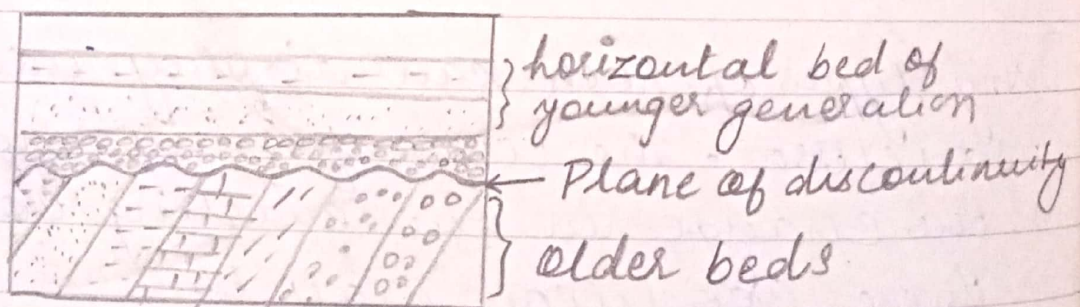 horizontal bed of
younger generation
Plane of discontinuity
older beds